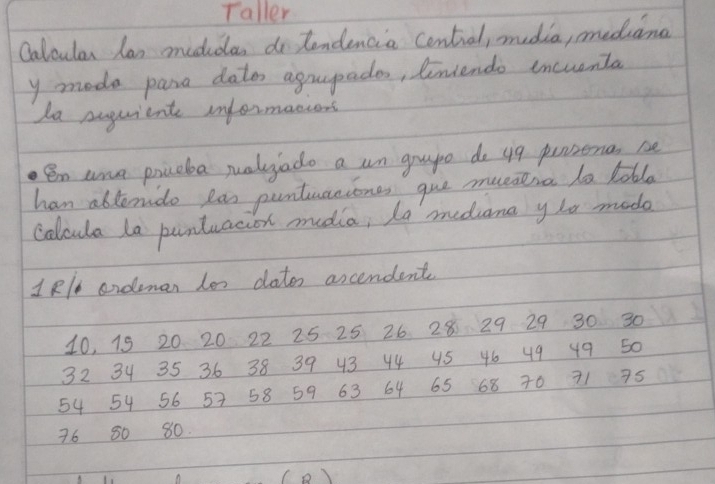 Taller
Calcular las medidas de tendencia central, media, mediana
y moda para datos agrupados, teniendo encuenta
la siguiente informacion
• En una prueba realizado a un grupo de 49 personas se
han obtenido las puntuaciones que muestra la tabla
calcula la puntuación media, la mediana y la moda
1 R/. ordenar los datos ascendente
10, 15 20 20 22 25 25 26 28 29 29 30 30
32 34 35 36 38 39 43 44 45 46 49 49 50
54 54 56 57 58 59 63 64 65 68 70 71 75
76 80 80.
(R)